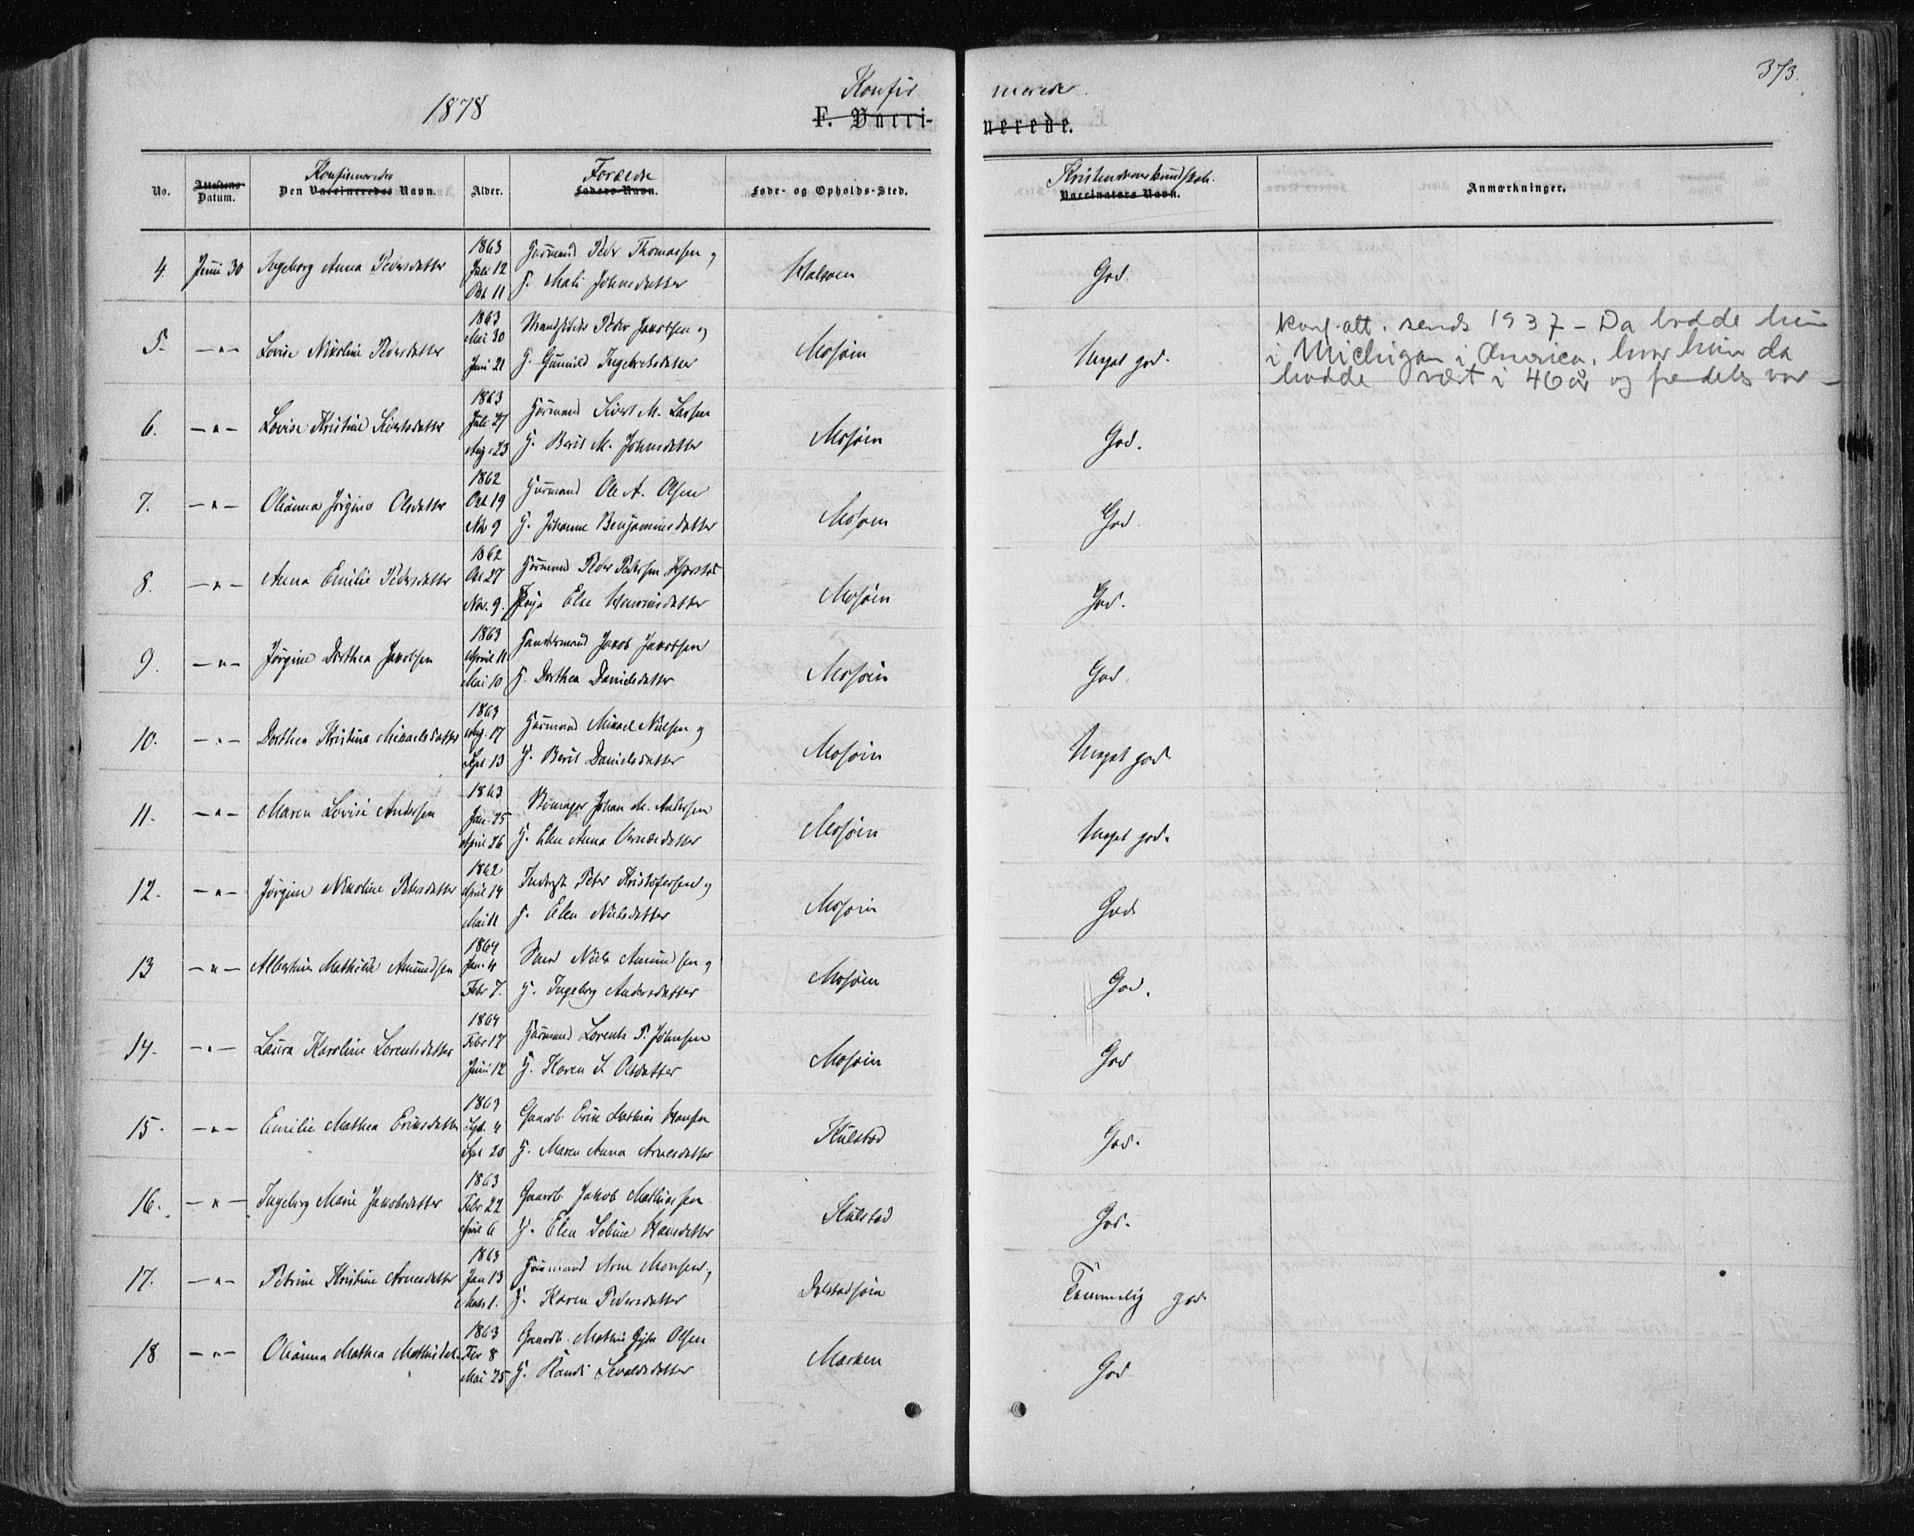 373.
1878
Konfir merede.
F. Vacci- nerede.
No. Attestens Datum. Konfirmeredes Den Vaccineredes Navn. Alder. Forældre Faders Navn. Føde- og Opholds-Sted. Kristendomskundskab. Vaccinators Navn. Anmærkninger.
1863
4 Juni 30 Ingeborg Anna Pedersdatter Juli 12 Huusmand Peder Thomassen og Halsøen God.
Okt 11 H. Mali Johnsdatter
1863
5. -"- Lovise Nikoline Pedersdatter Mai 30 Strandsidder Peder Jakobsen og Mosjøen Meget god
Juni 21 H. Gunnild Ingebretsdatter
Konf. att. sendt 1937 - Da bodde hun
i Michigan i America, hvor hun da
hadde vært i 46 år og fremdeles var -
1863
6. -"- Lovise Kristine Sivertsdatter Juli 27 Huusmand Sivert M. Larsen Mosjøen God.
Aug. 23 H. Berit M. Johnsdatter
1862
7. -"- Olianna Jørgine Olsdatter Okt 19 Huusmand Ole A. Olsen Mosjøen God
Nov 9 H. Johanne Benjaminsdatter
1862
8. -"- Anna Emilie Pedersdatter Okt 27 Huusmand Peder Pedersen Mosjøen God.
Nov. 9. Else
1863
9. -"- Jørgine Dorthea Jakobsen April 11 Handelsmand Jakob Jakobsen Mosjøen God.
Mai 10 H. Dorthea Danielsdatter
1863
10. -"- Dorthea Kristine Mikaelsdatter Aug. 17 Huusmand Mikael Nielsen og Mosjøen Meget god
Sept 13 H. Berit Danielsdatter
1863
11. -"- Maren Lovise Andersen Jan. 25 Johan M. Andersen Mosjøen Meget god.
April 26 H. Elen Anna
1862
12. -"- Jørgine Nikoline Pedersdatter April 14 Inderst Peter Kristofersen og Mosjøen God
Mai 11 H. Elen Nielsdatter
1864
13 -"- Albertine Mathilde Amundsen Jan. 4 Niels Amundsen og Mosjøen God.
Febr 7. H. Ingeborg Andersdatter
1864
14. -"- Laura Karoline Lorentsdatter Febr 17 Huusmand Lorents P. Johnsen Mosjøen God
Juni 12 H. Karen S Olsdatter
1863
15. -"- Emilie Mathea Eriksdatter Sept. 4 Gaardb. Erik Mathias Hansen Kulstad God.
Sept 20 H. Maren Anna Arnesdatter
1863
16. -"- Ingeborg Marie Jakobsdatter Febr 22 Gaardb. Jakob Mathiassen Kulstad God.
April 6 H. Elen Sebine Hansdatter
1863
17. -"- Petrine Kristine Arnesdatter Jan 13 Huusmand Arne Monsen og Dolstadsjøen Temmelig god
Marts 1. H. Karen Pedersdatter
1863
18 -"- Olianna Mathea Febr 8 Gaardb. Olsen Marken God
Mai 25 H. Randi Sevaldsdatter